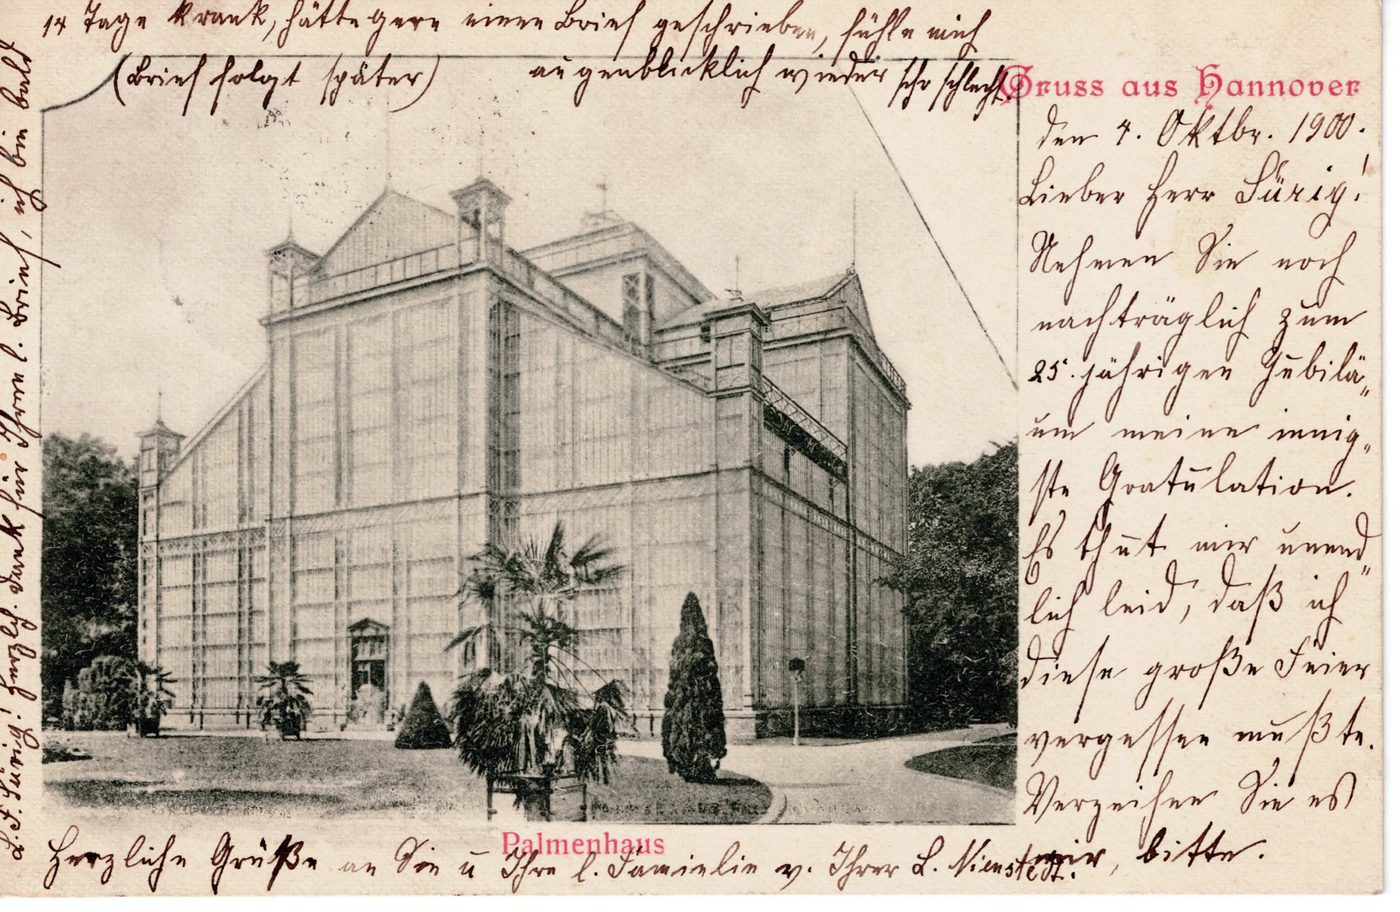 Gruss aus Hannover
den 4. Oktbr. 1900.
Lieber Herr Sürig!
Nehmen Sie noch
nachträglich zum
25. jährigen Jubilä„
um meine innig„
ste Gratulation.
Es thut mir unend„
lich leid, daß ich
diese große Feier
vergessen mußte.
Verzeihen Sie es
mir, bitte.
Herzliche Grüße an Sie u Ihre l. Familie v. Ihrer L. Nienstedt.
Palmenhaus
L. F. Sürig! Herzlich. Dank für Ihren l. Brief, ich bin bald
14 Tage krank, hätte gern einen Brief geschrieben, fühle mich
(Brief folgt später) augenblicklich wieder sehr schlecht.